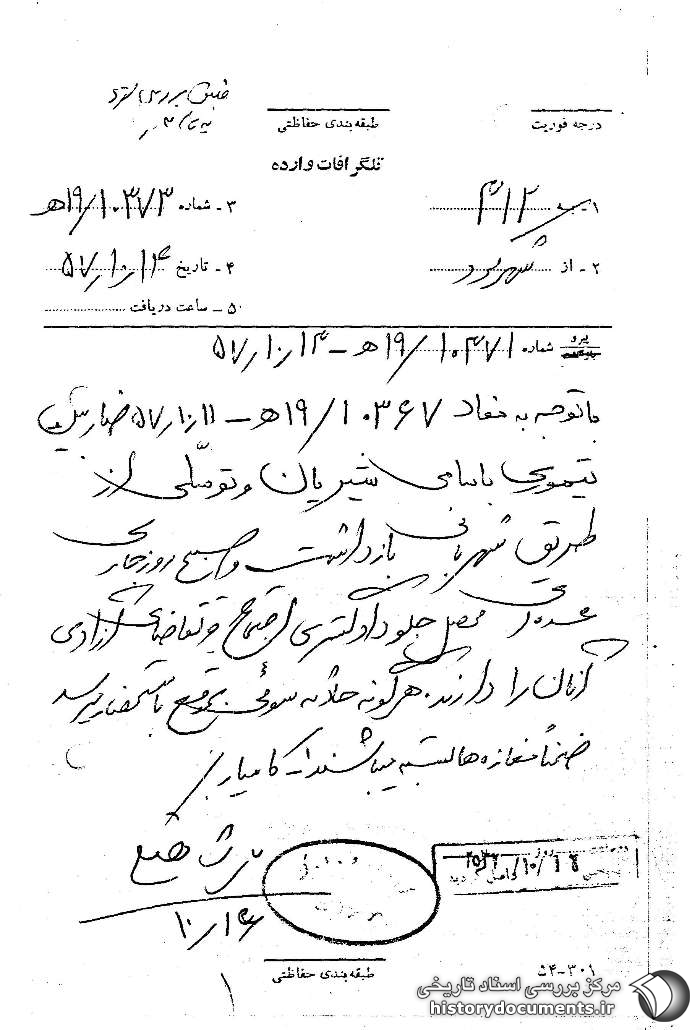 درجه فوریت
طبقه‌بندی حفاظتی
تلگرافات وارده
۱- به ۳۱۲
۳- شماره ۱۰۳۷۳/۱۹ه‍
۲- از شهرکرد
۴- تاریخ ۵۷/۱۰/۱۴
۵- ساعت دریافت
پیرو شماره ۱۰۳۷۱/۱۹ه‍ - ۵۷/۱۰/۱۳
با توجه به مفاد ۱۰۳۶۷/۱۹ه‍ - ۵۷/۱۰/۱۱
تیموری باسامی شیریان و توسلی از
طریق شهربانی بازداشت و صبح روز جاری
عده‌ای محصل جلو دادگستری اجتماع و تقاضای آزادی
آنان را دارند. هرگونه حادثه سوئی بوقوع باستحضار میرسد
ضمناً مغازه‌ها بسته میباشند. کامیار
۱۰/۱۴
طبقه‌بندی حفاظتی
۵۴-۳۰۱
۱
مرکز بررسی اسناد تاریخی
historydocuments.ir